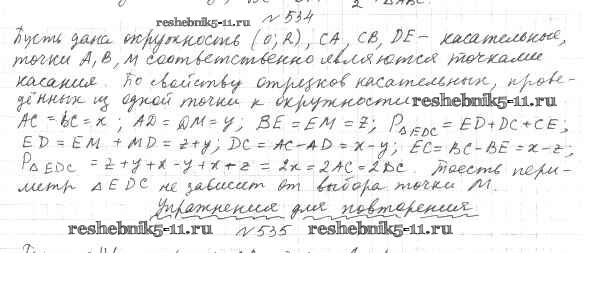 2 △ABC.
reshebnik5-11.ru №534
Пусть дана окружность (O; R), CA, CB, DE - касательные,
точки A, B, M соответственно являются точками
касания. По свойству отрезков касательных, прове-
дённых из одной точки к окружности reshebnik5-11.ru
AC = BC = x; AD = DM = y; BE = EM = z; P△EDC = ED + DC + CE;
ED = EM + MD = z + y; DC = AC - AD = x - y; EC = BC - BE = x - z;
P△EDC = z + y + x - y + x + z = 2x = 2AC = 2BC. Тоесть пери-
метр △EDC не зависит от выбора точки M.
Упражнения для повторения
reshebnik5-11.ru №535 reshebnik5-11.ru